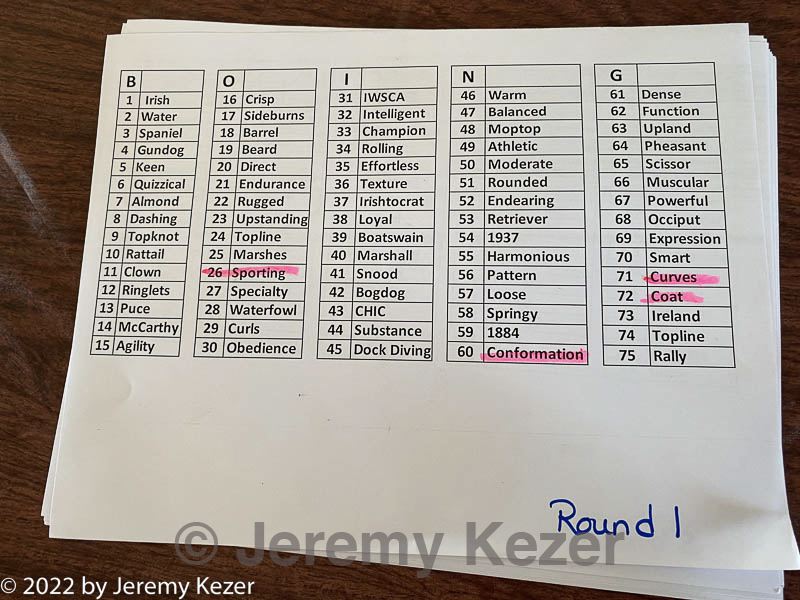 B O I N G
1 Irish 16 Crisp 31 IWSCA 46 Warm 61 Dense
2 Water 17 Sideburns 32 Intelligent 47 Balanced 62 Function
3 Spaniel 18 Barrel 33 Champion 48 Moptop 63 Upland
4 Gundog 19 Beard 34 Rolling 49 Athletic 64 Pheasant
5 Keen 20 Direct 35 Effortless 50 Moderate 65 Scissor
6 Quizzical 21 Endurance 36 Texture 51 Rounded 66 Muscular
7 Almond 22 Rugged 37 Irishtocrat 52 Endearing 67 Powerful
8 Dashing 23 Upstanding 38 Loyal 53 Retriever 68 Occiput
9 Topknot 24 Topline 39 Boatswain 54 1937 69 Expression
10 Rattail 25 Marshes 40 Marshall 55 Harmonious 70 Smart
11 Clown 26 Sporting 41 Snood 56 Pattern 71 Curves
12 Ringlets 27 Specialty 42 Bogdog 57 Loose 72 Coat
13 Puce 28 Waterfowl 43 CHIC 58 Springy 73 Ireland
14 McCarthy 29 Curls 44 Substance 59 1884 74 Topline
15 Agility 30 Obedience 45 Dock Diving 60 Conformation 75 Rally
Round 1
© Jeremy Kezer
© 2022 by Jeremy Kezer